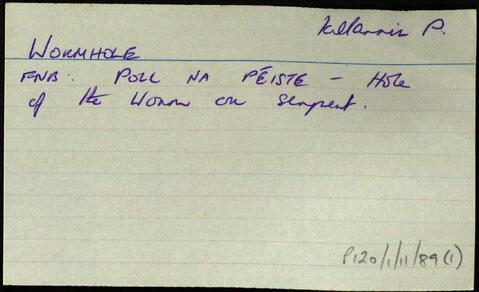 Killannin P.
WORMHOLE
FNB: POLL NA PÉISTE - Hole
of the Worm or serpent.
P120/1/11/89(1)